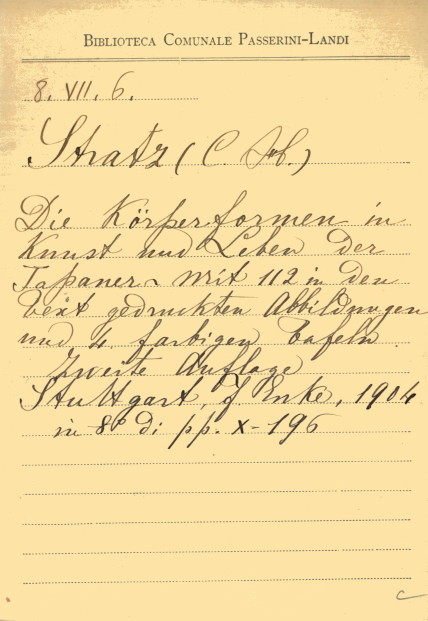 BIBLIOTECA COMUNALE PASSERINI-LANDI
8. VII. 6.
Stratz (C. H.)
Die Körperformen in
Kunst und Leben der
Japaner - mit 112 in den
text gedruckten Abbildungen
und 4 farbigen tafeln.
Zweite Auflage
Stuttgart, f Enke, 1904
in 8° di pp. X-196
C